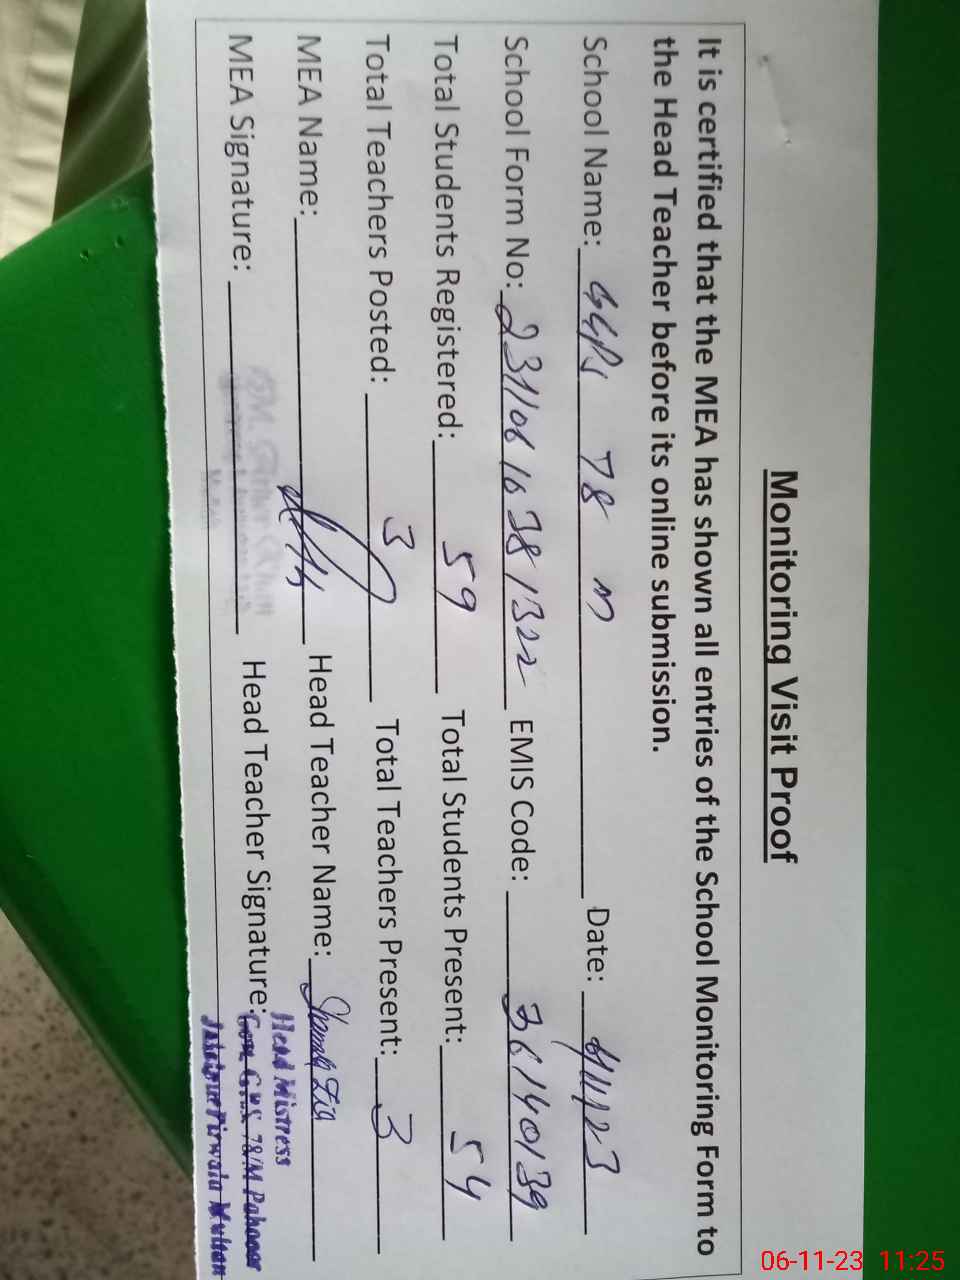 Monitoring Visit Proof
It is certified that the MEA has shown all entries of the School Monitoring Form to
the Head Teacher before its online submission.
School Name: GGPS 78 M Date:
School Form No: EMIS Code: 36140139
Total Students Registered: 59 Total Students Present: 54
Total Teachers Posted: 3 Total Teachers Present: 3
MEA Name: Head Teacher Name: Zia
MEA Signature: Head Teacher Signature:
Head Mistress
78/M
Jalalpur Pirwala Multan
06-11-23 11:25